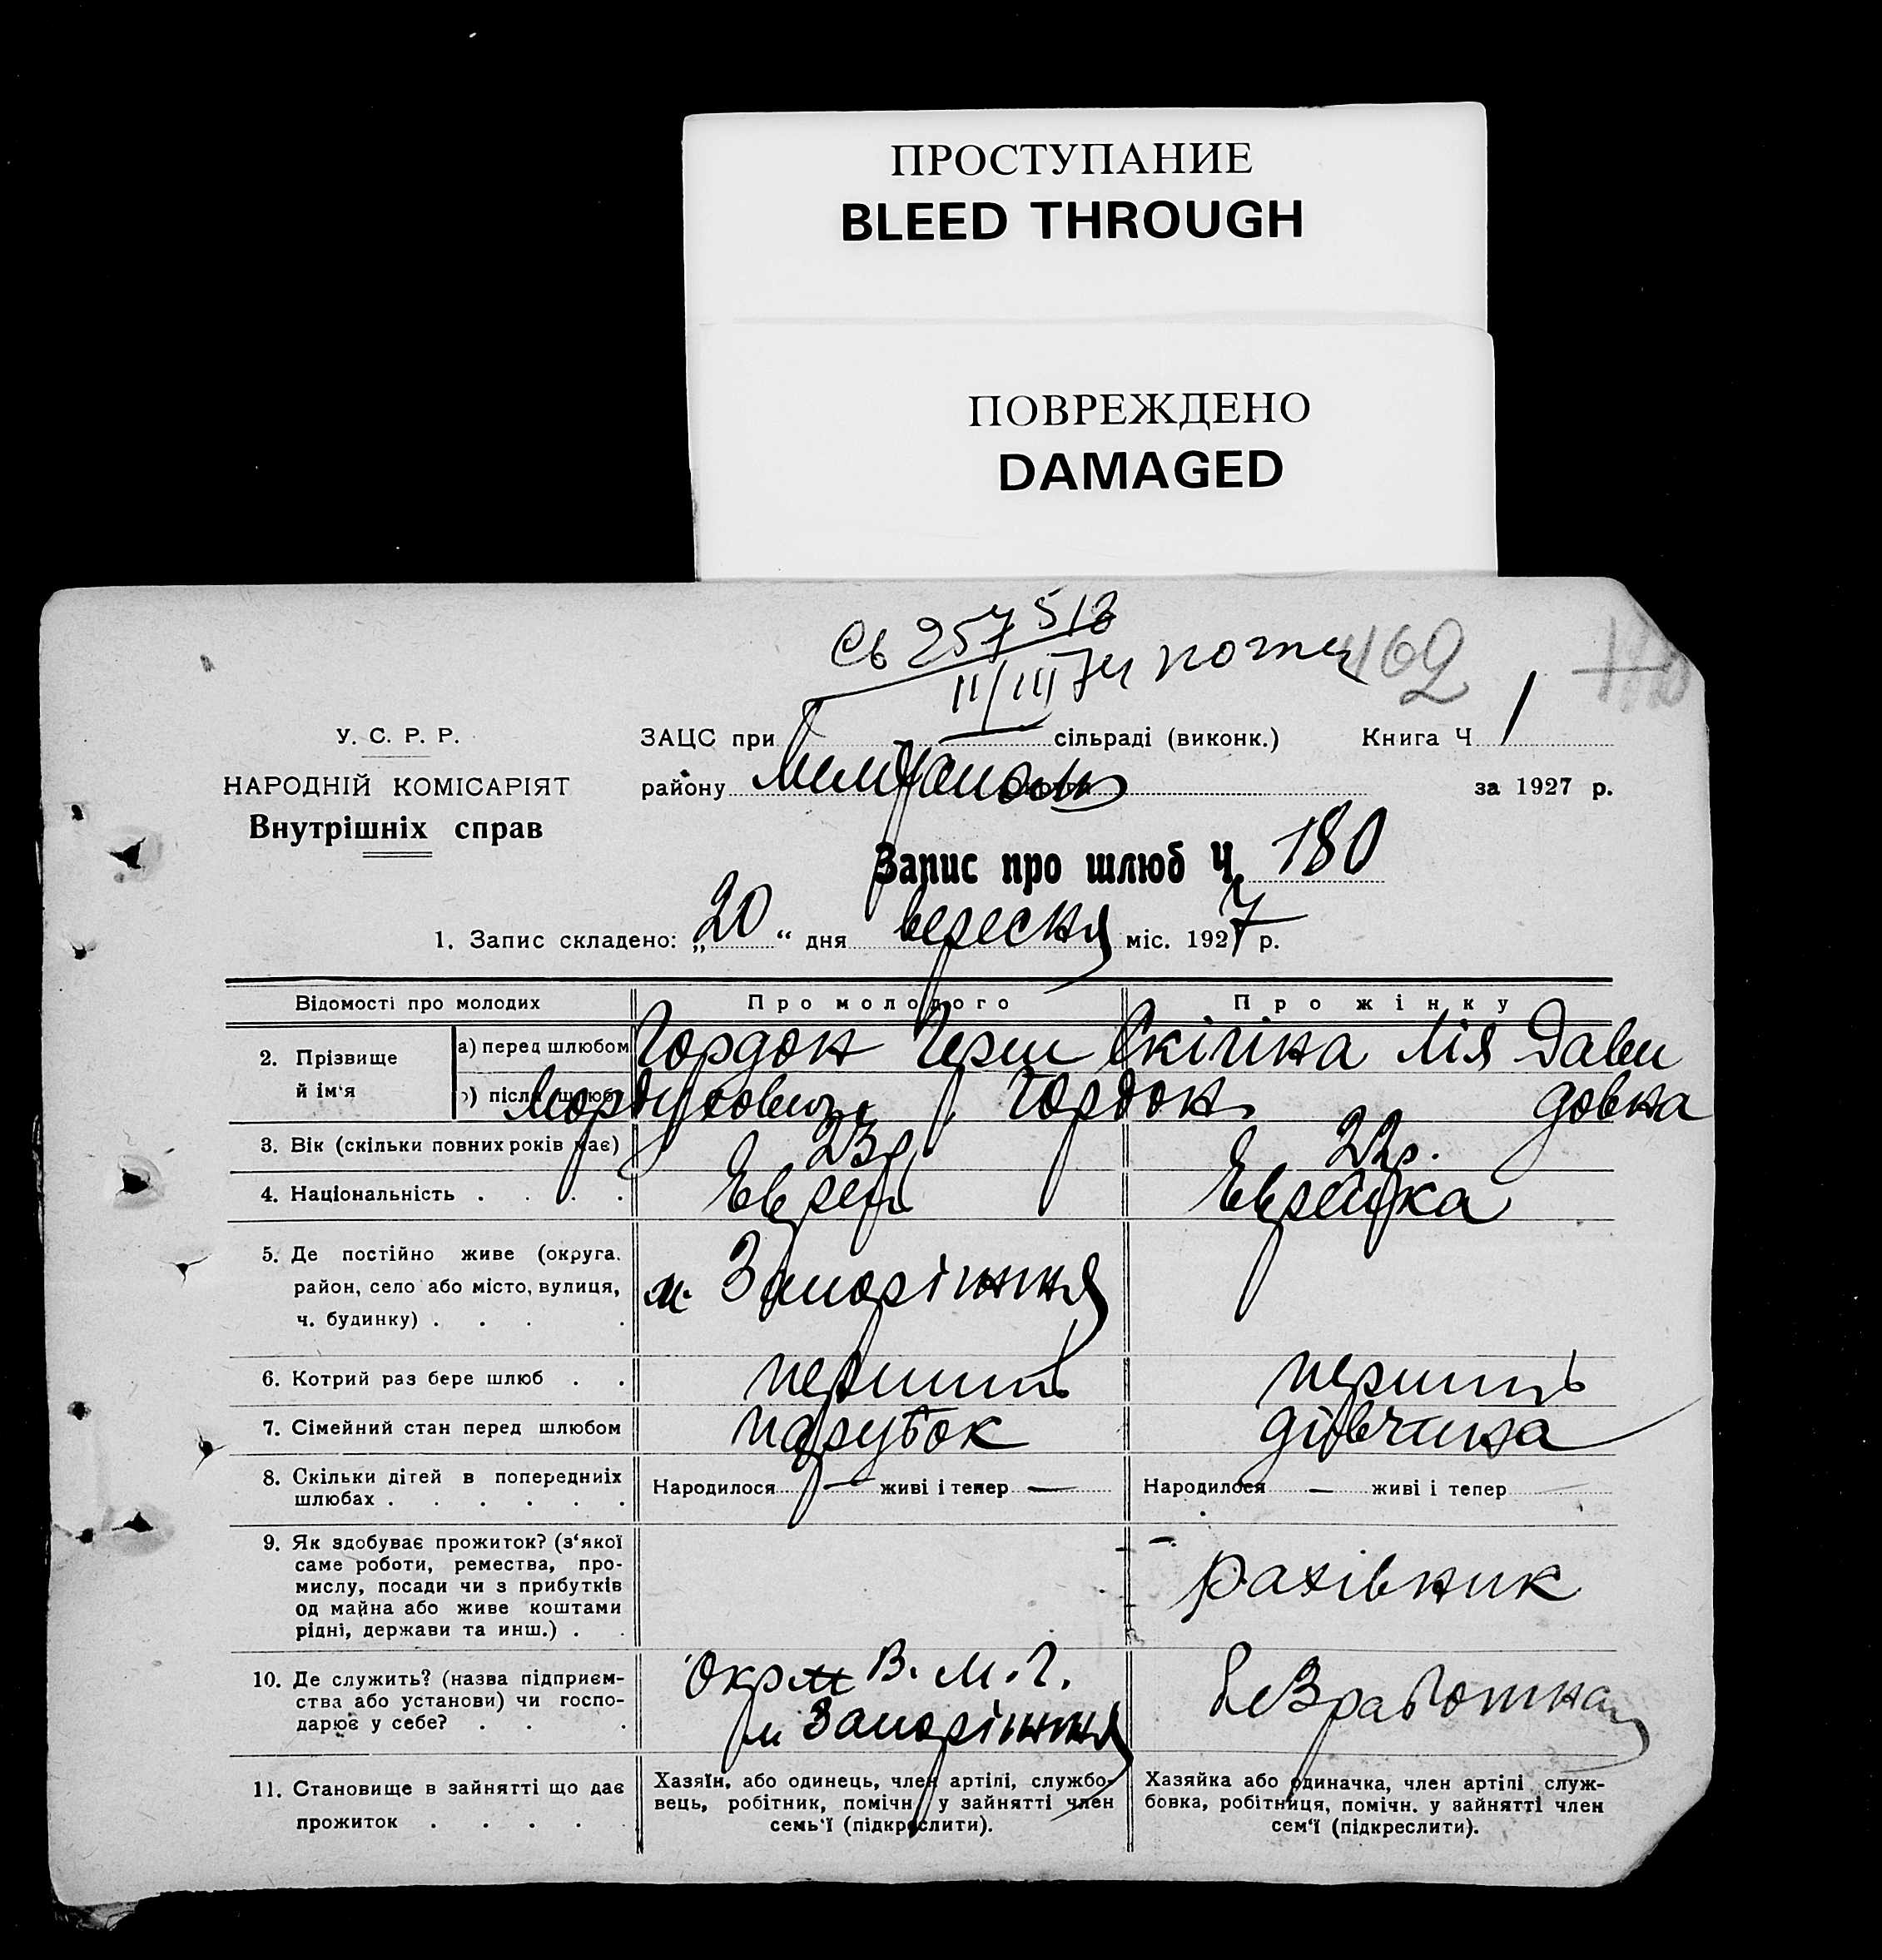 ПРОСТУПАНИЕ
BLEED THROUGH
ПОВРЕЖДЕНО
DAMAGED
Св 257518
II/III 74
162
У. С. Р. Р.
ЗАЦС при сільраді (виконк.) Книга Ч 1
НАРОДНІЙ КОМІСАРІЯТ
району за 1927 р.
Внутрішніх справ
Запис про шлюб Ч. 180
1. Запис складено: „20“ дня вересня міс. 1927 р.
Відомості про молодих
Про молодого
Про жінку
2. Прізвище й ім'я
а) перед шлюбом
Гордон Герш
Мордухович
Давидовна
б) після шлюбу
Гордон
3. Вік (скільки повних років має)
23 р.
22 р.
4. Національність . . . .
Еврей
Еврейка
5. Де постійно живе (округа.
район, село або місто, вулиця,
ч. будинку) . . . .
м. Запоріжжя
6. Котрий раз бере шлюб . .
перший
перший
7. Сімейний стан перед шлюбом
парубок
дівчина
8. Скільки дітей в попередниіх
шлюбах . . . . . .
Народилося — живі і тепер —
Народилося — живі і тепер
9. Як здобуває прожиток? (з'якої
саме роботи, ремества, про-
мислу, посади чи з прибутків
од майна або живе коштами
рідні, держави та инш.) . .
рахівник
10. Де служить? (назва підприєм-
ства або установи) чи госпо-
дарює у себе? . . .
В. М. Г.
м Запоріжжя
безработна
11. Становище в зайнятті що дає
прожиток . . . . .
Хазяїн, або одинець, член артілі, службо-
вець, робітник, помічн. у зайнятті член
семь'ї (підкреслити).
Хазяйка або одиначка, член артілі служ-
бовка, робітниця, помічн. у зайнятті член
сем'ї (підкреслити).